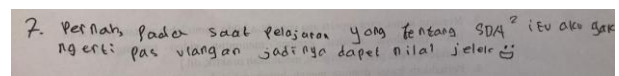 7. Pernah, Pada saat Pelajaran yang tentang SDA² itu aku gak
ngerti pas ulangan jadinya dapet nilai jelek